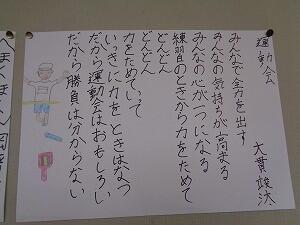 運動会
大貫竣汰
みんなで全力を出す
みんなの気持ちが高まる
みんなの心が一つになる
練習のときから力をためて
どんどん
どんどん
力をためていって
いっきに力を ときはなつ
だから運動会はおもしろい
だから勝負は分からない